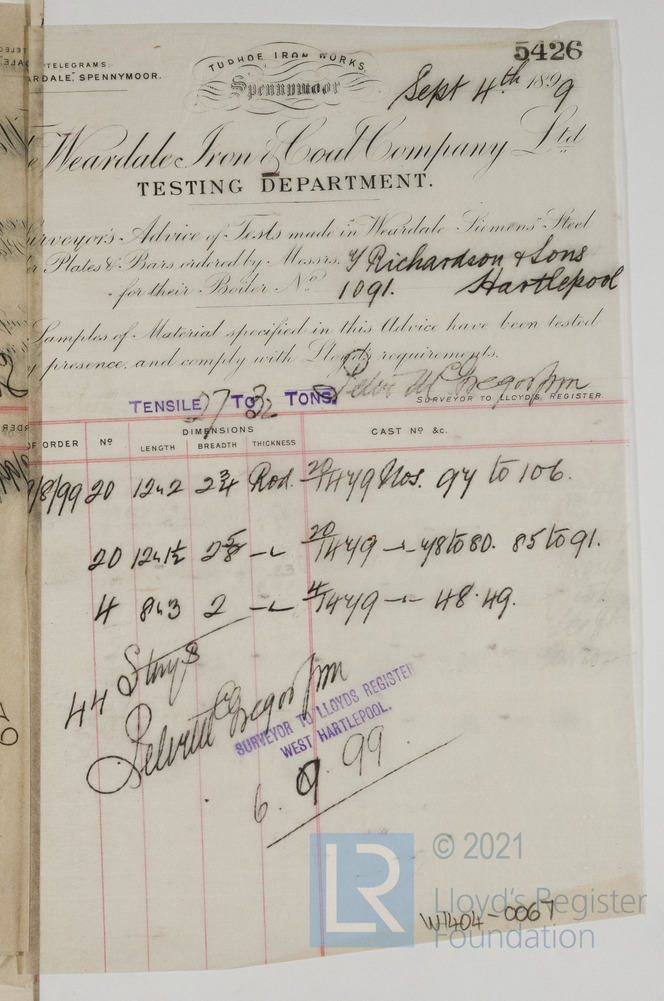 TELEGRAMS:
ARDALE, SPENNYMOOR.
TUDHOE IRON WORKS,
Spennymoor
5426
Sept 4th 1899
Weardale Iron & Coal Company Ltd
TESTING DEPARTMENT.
urveyor's Advice of Tests made in "Weardale Siemens" Steel
Plates & Bars ordered by Messrs. T Richardson & Sons
for their Boiler No 1091. Hartlepool
Samples of Material specified in this Advice have been tested
presence, and comply with Lloyd's requirements.
TENSILE 27 TO 32 TONS.
SURVEYOR TO LLOYD'S REGISTER.
OF ORDER No DIMENSIONS CAST No &c.
LENGTH BREADTH THICKNESS
/8/99 20 12 2 2 3/4 Rod. 20/1479 Nos. 97 to 106.
20 12 1 1/2 2 5/8 20/1479 78 to 80. 85 to 91.
4 8 3 2 4/1479 48. 49.
44 Stays
SURVEYOR TO LLOYDS REGISTER
WEST HARTLEPOOL.
6. 9. 99.
LR
© 2021
Lloyd's Register
Foundation
W1404-0067